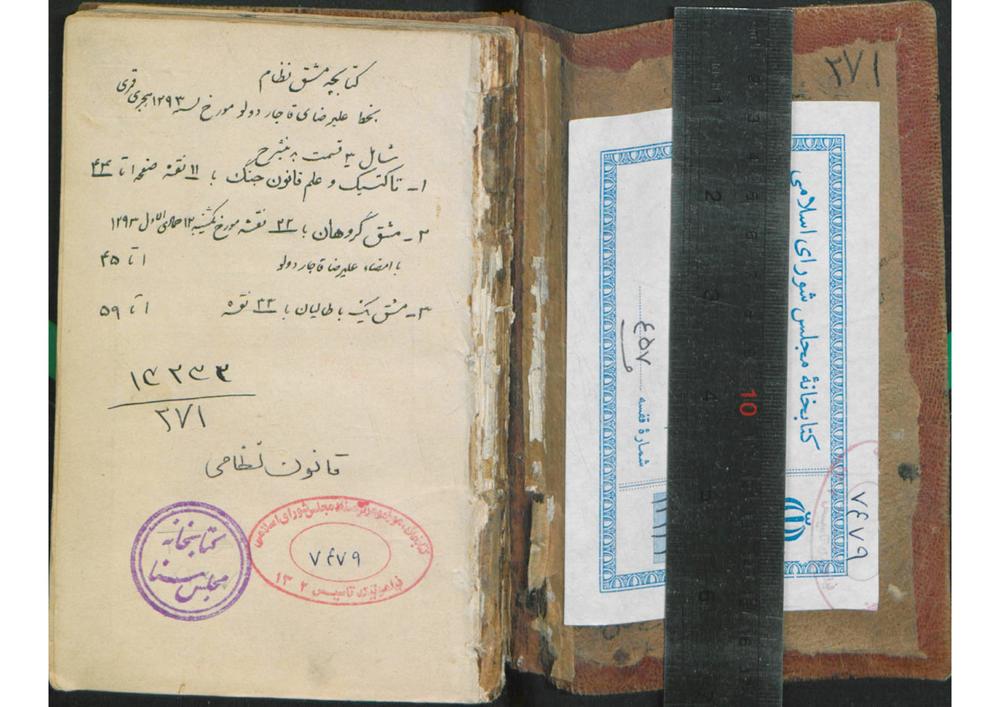 کتابچه مشق نظام
بخط علیرضای قاجار دولو مورخ سنه ۱۲۹۳ هجری قمری
شامل ۳ قسمت بدینشرح
۱- تاکتیک و علم قانون جنگ با ۱۱ نقشه صفحه ۱ تا ۴۴
۲- مشق گروهان با ۲۲ نقشه مورخ یکشنبه ۱۲ جمادی الاول ۱۲۹۳
با امضاء علیرضا قاجار دولو ۱ تا ۴۵
۳- مشق یک باطالیان با ۲۴ نقشه ۱ تا ۵۹
۱۴۲۳۲
۲۷۱
قانون نظامی
کتابخانه
مجلس سنا
کتابخانه، موزه و مرکز اسناد مجلس شورای اسلامی
۷۴۷۹
تاسیس ۱۳۰۲
۲۷۱
کتابخانهٔ مجلس شورای اسلامی
شمارهٔ قفسه
۴۵۷
۷۴۷۹
1
2
3
4
5
6
10